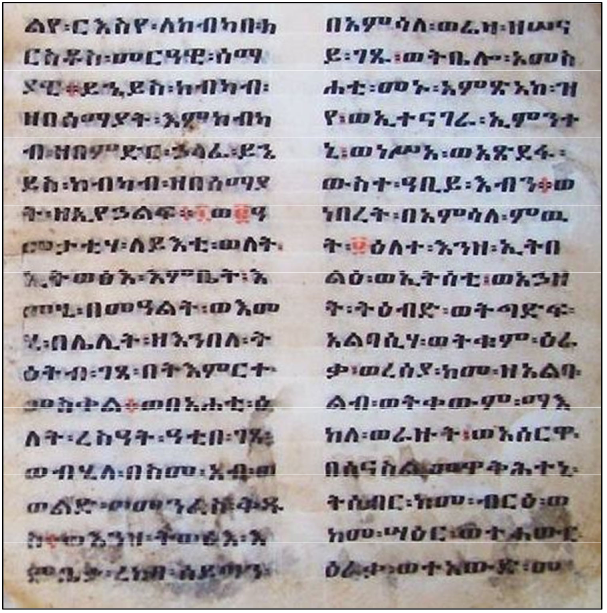 ልየ፡ርእስየ፡ለከብካበ፡ክ
ርስቶስ፡መርዓዊ፡ሰማ
ያዊ፡ይኄይስ፡ከብካብ፡
ዘበሰማያት፡እምከብካ
ብ፡ዘበምድር፡ኃላፊ፡ይኄ
ይስ፡ከብካብ፡ዘበሰማያ
ት፡ዘኢየኃልፍ፡ወ ዓ
መታቲሃ፡ለይእቲ፡ወለት፡
ኢትወፅእ፡እምቤት፡እ
መሂ፡በመዓልት፡ወእመ
ሂ፡በሌሊት፡ዘእንበለ፡ት
ዕትብ፡ገጻ፡በትእምርተ፡
መስቀል፡ወበአሐቲ፡ዕ
ለት፡ረስዓት፡ዓቲበ፡ገጻ፡
ወብሂለ፡በስመ፡አብ፡ወ
ወልድ፡ወመንፈስ፡ቅዱ
ስ፡ወእንዘ፡ትወፅእ፡እ
ምቤታ፡ረከበ፡ሰይጣን፡
በአምሳለ፡ወሬዛ፡ዘሠና
ይ፡ገጹ፡ወትቤሎ፡አመስ
ሐቲ፡መኑ፡አምጽአከ፡ዝ
የ፡ወኢተናገራ፡ኢምንተ
ኒ፡ወነሥአ፡ወአጽደፋ፡
ውስተ፡ዓቢይ፡እብን፡ወ
ነበረት፡በአምሳለ፡ምዉ
ት፡ ዕለተ፡እንዘ፡ኢትበ
ልዕ፡ወኢትሰቲ፡ወአኃዘ
ት፡ትዕብድ፡ወትጣድፍ፡
አልባሲሃ፡ወትቁም፡ዕራ
ቃ፡ወረሰያ፡ከመ፡ዝአልባ
ልብ፡ወትቀውም፡ማእ
ከለ፡ወራዙት፡ወአሰርዋ፡
በሰናስል፡መዋቅሕተኒ፡
ትሰብር፡ከመ፡ብርዕ፡ወ
ከመ፡ሣዕር፡ወተሐውር፡
ዕራቃ፡ወተአውድ፡መ